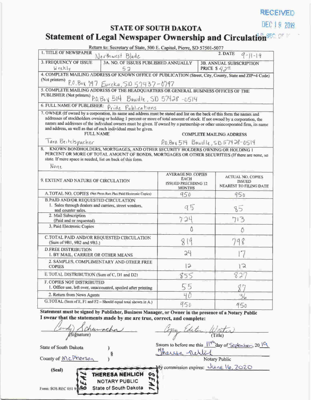 RECEIVED
DEC 19 2019
STATE OF SOUTH DAKOTA
Statement of Legal Newspaper Ownership and Circulation
Return to: Secretary of State, 500 E. Capital, Pierre, SD 57501-5077
1. TITLE OF NEWSPAPER Northwest Blade 2. DATE 9-11-19
3. FREQUENCY OF ISSUE Weekly 3A. NO. OF ISSUES PUBLISHED ANNUALLY 52 3B. ANNUAL SUBSCRIPTION PRICE $
4. COMPLETE MAILING ADDRESS OF KNOWN OFFICE OF PUBLICATION (Street, City, County, State and ZIP+4 Code)
(Not printers) PO Box 797 Eureka, SD 57437-0797
5. COMPLETE MAILING ADDRESS OF THE HEADQUARTERS OR GENERAL BUSINESS OFFICES OF THE
PUBLISHER (Not printers) PO Box 514 Bowdle, SD 57428-0514
6. FULL NAME OF PUBLISHER: Pride Publications
7. OWNER (If owned by a corporation, its name and address must be stated and list on the back of this form the names and
addresses of stockholders owning or holding 1 percent or more of total amount of stock. If not owned by a corporation, the
names and addresses of the individual owners must be given. If owned by a partnership or other unincorporated firm, its name
and address, as well as that of each individual must be given.
FULL NAME COMPLETE MAILING ADDRESS
Tara PO Box 514 Bowdle, SD 57428-0514
8. KNOWN BONDHOLDERS, MORTGAGES, AND OTHER SECURITY HOLDERS OWNING OR HOLDING 1
PERCENT OR MORE OF TOTAL AMOUNT OF BONDS, MORTGAGES OR OTHER SECURITIES (If there are none, so
state. If more space is needed, list on back of this form.
None
9. EXTENT AND NATURE OF CIRCULATION
AVERAGE NO. COPIES EACH ISSUED PRECEDING 12 MONTHS
ACTUAL NO. COPIES ISSUED NEAREST TO FILING DATE
A. TOTAL NO. COPIES 950 950
B. PAID AND/OR REQUESTED CIRCULATION
1. Sales through dealers and carriers, street vendors,
and counter sales. 95 85
2. Mail Subscription
(Paid and or requested) 724 713
3. Paid Electronic Copies 0 0
C. TOTAL PAID AND/OR REQUESTED CIRCULATION
(Sum of 9B1, 9B2 and 9B3.) 819 798
D. FREE DISTRIBUTION
1. BY MAIL, CARRIER OR OTHER MEANS 24 17
2. SAMPLES, COMPLIMENTARY AND OTHER FREE
COPIES 12 12
E. TOTAL DISTRIBUTION (Sum of C, D1 and D2) 855 827
F. COPIES NOT DISTRIBUTED
1. Office use, left over, unaccounted, spoiled after printing 55 87
2. Return from News Agents 40 36
G. TOTAL (Sum of E, F1 and F2 - Should equal total shown in A.) 950 950
Statement must be signed by Publisher, Business Manager, or Owner in the presence of a Notary Public
I swear that the statements made by me are true, correct, and complete:
Cindy
(Signature) (Title)
State of South Dakota )
County of McPherson )
Sworn to before me this 11th Day of September, 2019
Theresa Nehlich
Notary Public
(Seal) My commission expires: June 16, 2020
SEAL THERESA NEHLICH SEAL
NOTARY PUBLIC
SOUTH DAKOTA